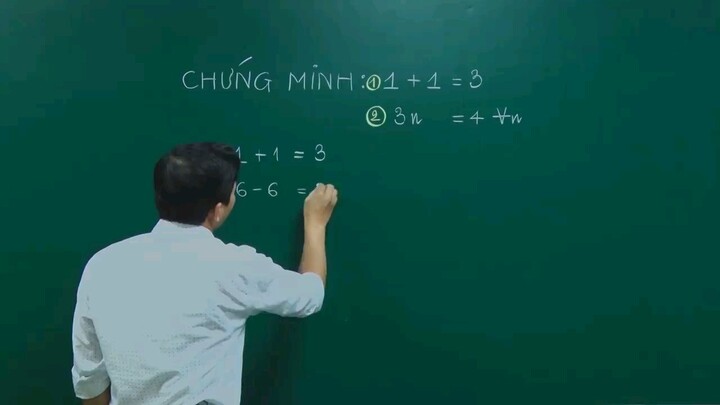 CHỨNG MINH: ① 1 + 1 = 3
② 3n = 4 ∀n
1 + 1 = 3
6 - 6 =